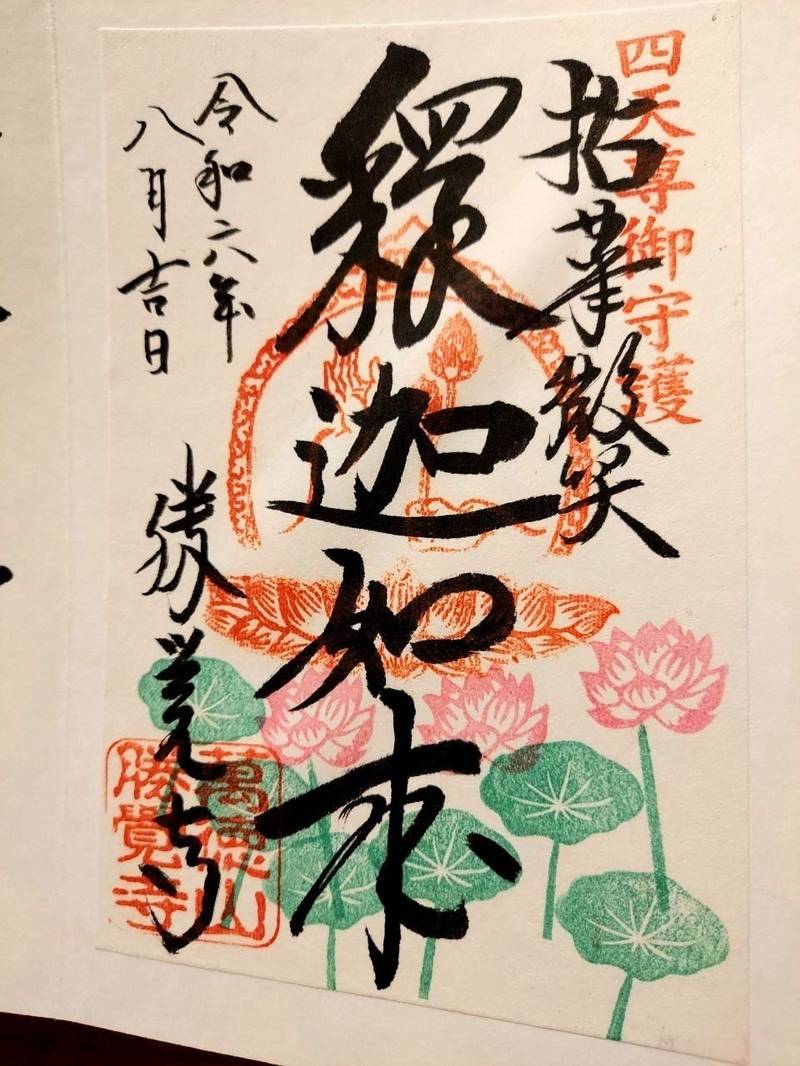 四天尊御守護
拈華微笑
釋迦如来
令和六年
八月吉日
勝覚寺
萬徳山
勝覺寺